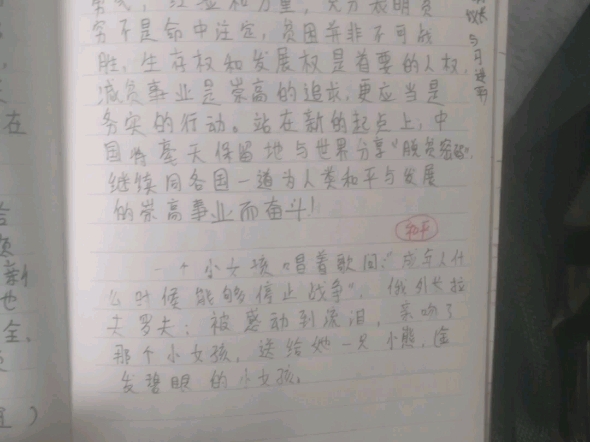 穷不是命中注定，贫困并非不可战
胜。生存权和发展权是首要的人权，
减贫事业是崇高的追求，更应当是
务实的行动。站在新的起点上，中
国将毫无保留地与世界分享"脱贫密码"，
继续同各国一道为人类和平与发展
的崇高事业而奋斗！
和平
一个小女孩唱着歌问："成年人什
么时候能够停止战争"，俄外长拉
夫罗夫：被感动到流泪，亲吻了
那个小女孩，送给她一只小熊，金
发碧眼的小女孩。
在
新
地
全，